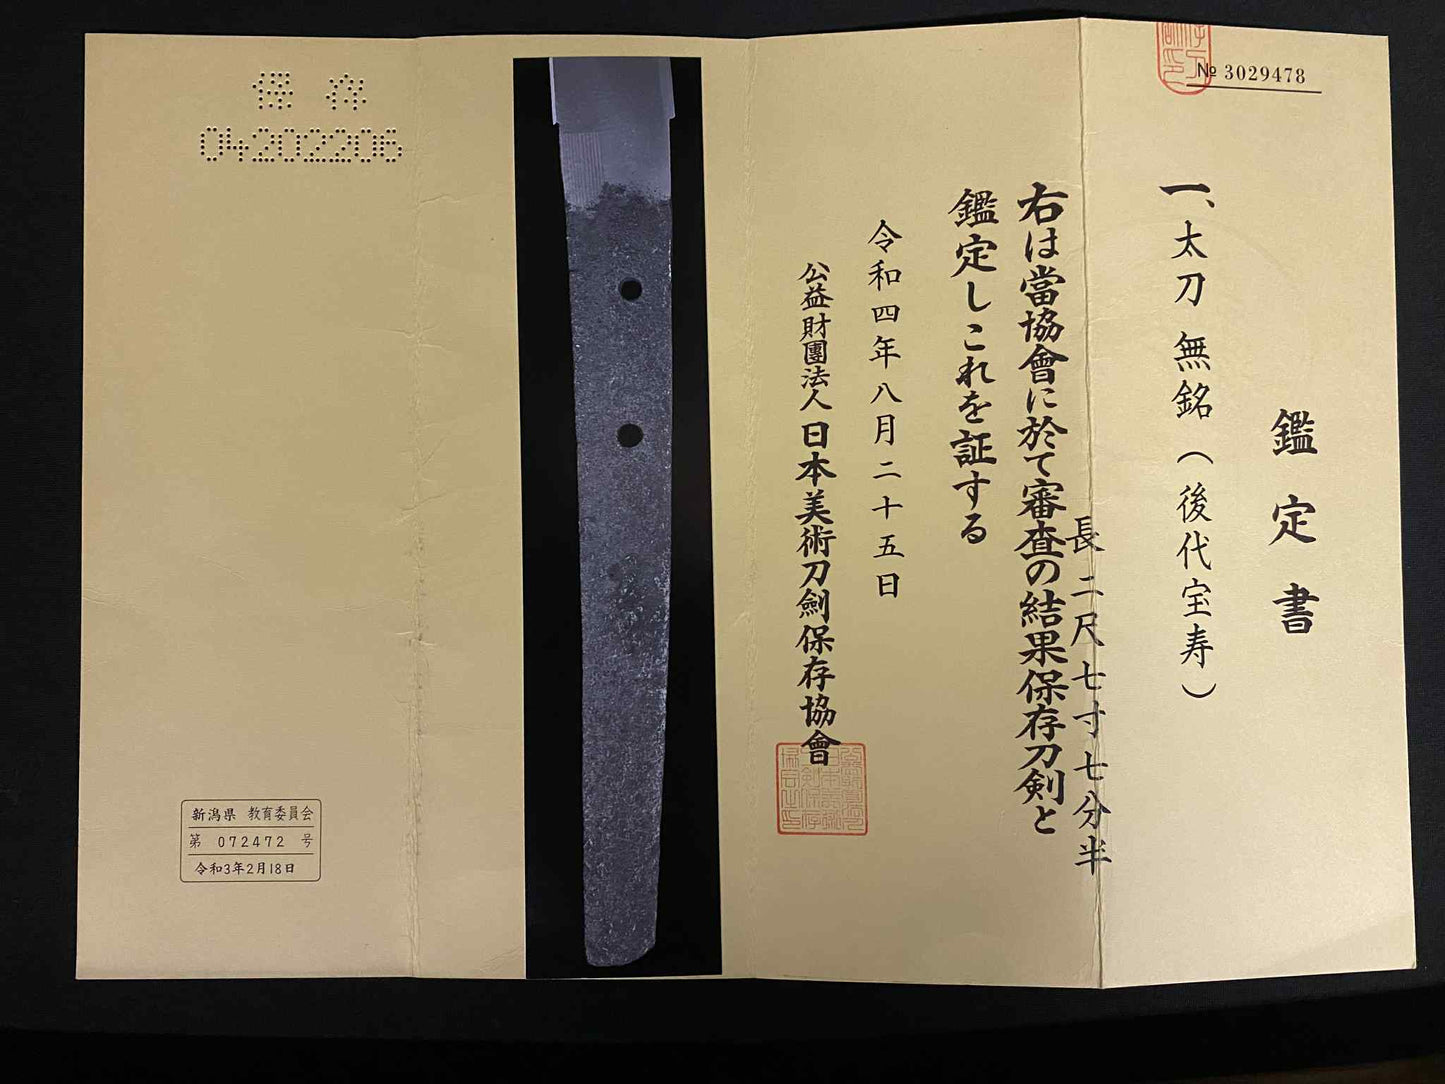 № 3029478
鑑定書
一、太刀 無銘（後代宝寿）
長二尺七寸七分半
右は當協會に於て審査の結果保存刀剣と
鑑定しこれを証する
令和四年八月二十五日
公益財團法人日本美術刀劍保存協會
保存
04202206
新潟県 教育委員会
第 072472 号
令和3年2月18日